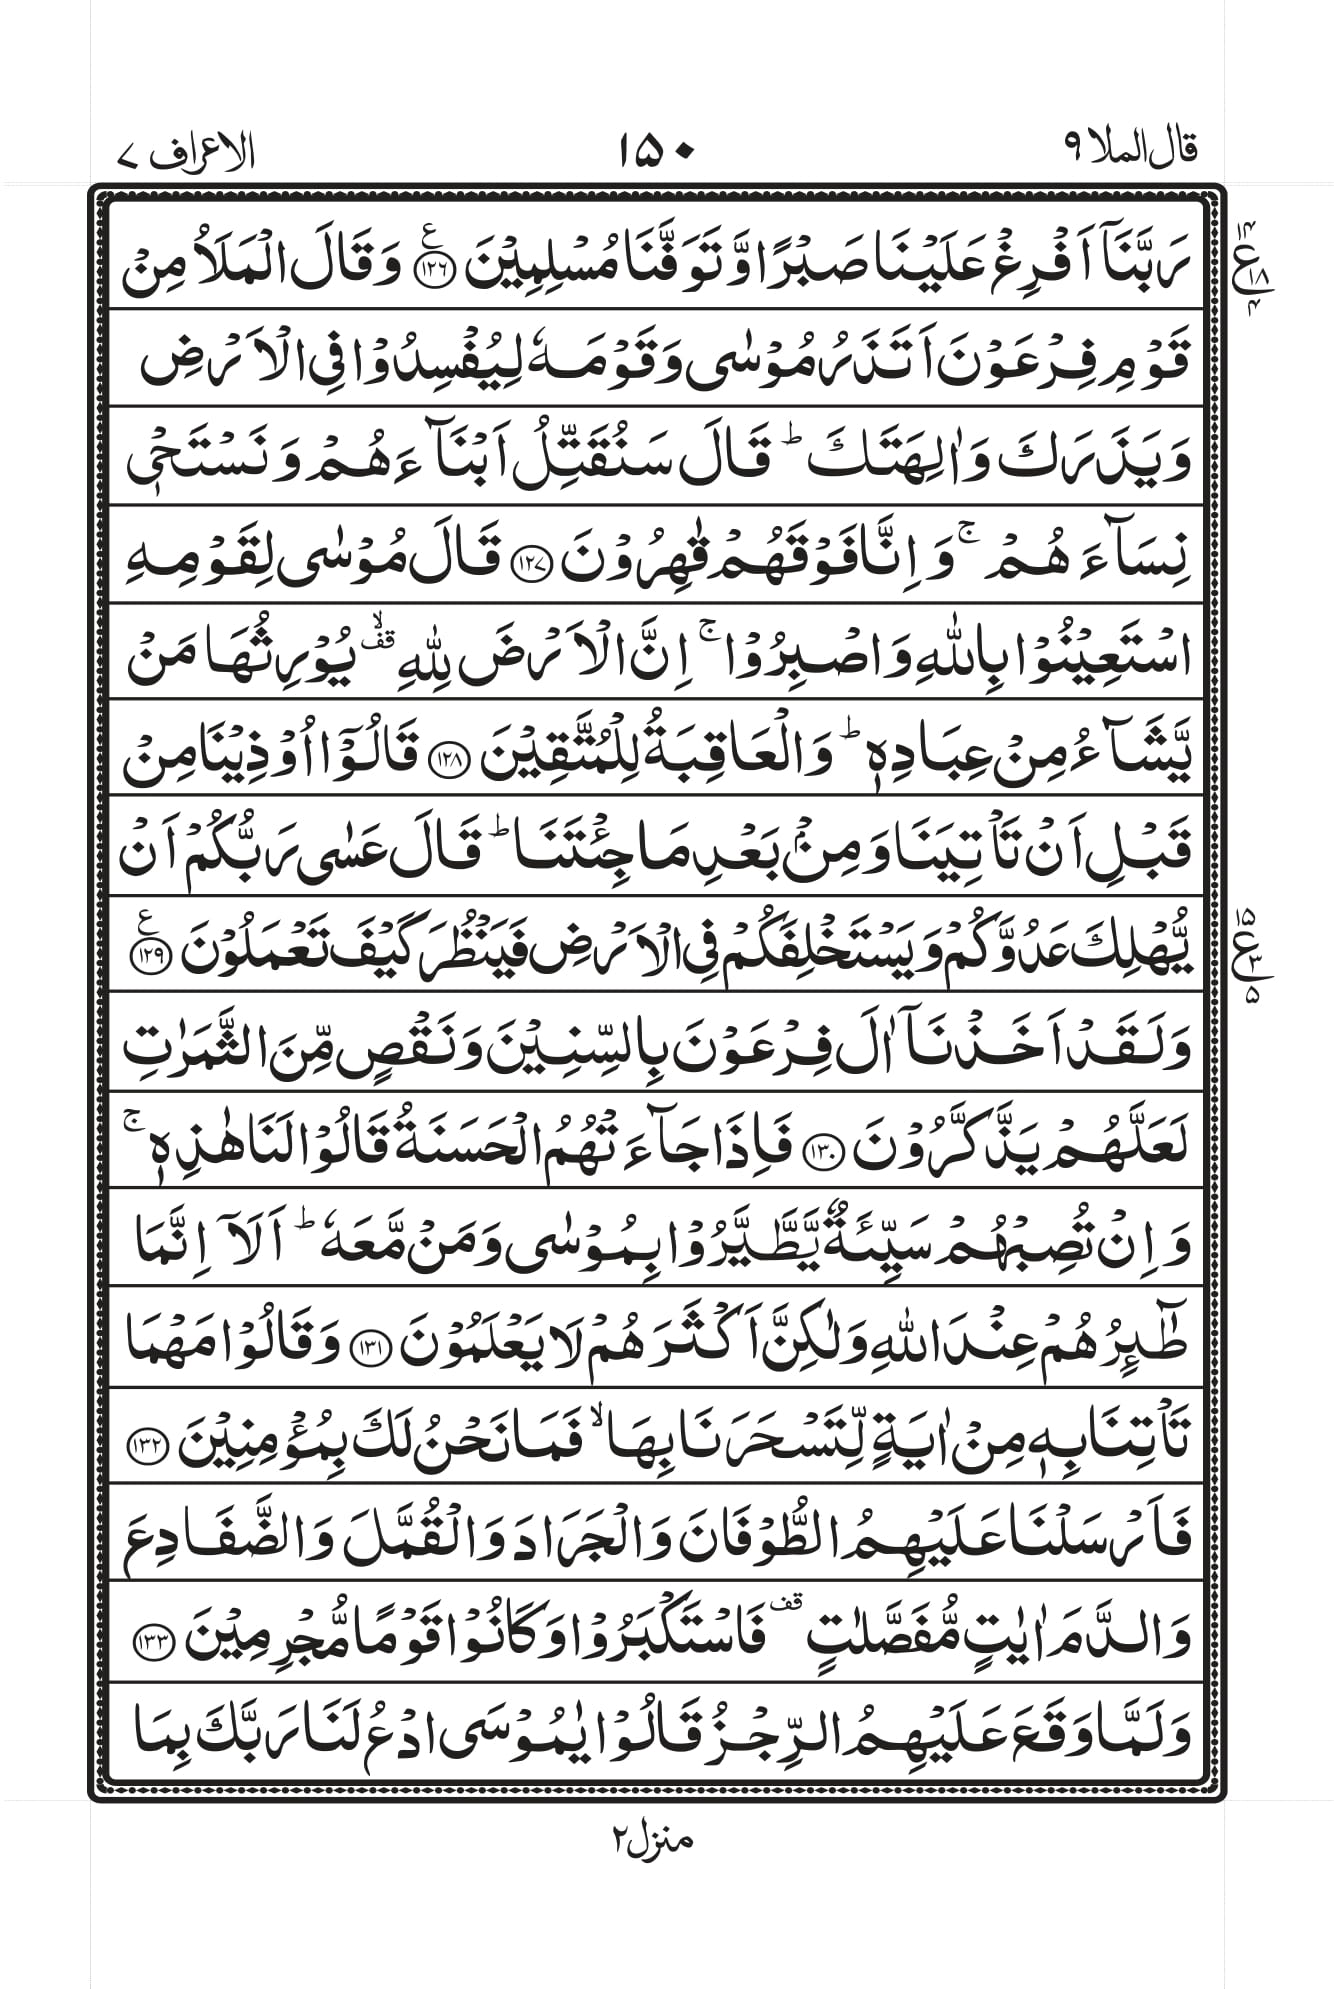 قال الملا ٩
١٥٠
الاعراف ٧
رَبَّنَاۤ اَفْرِغْ عَلَیْنَا صَبْرًا وَّ تَوَفَّنَا مُسْلِمِیْنَ ﴿۱۲۶﴾ ع وَ قَالَ الْمَلَاُ مِنْ
۱۴ ع ۱۸ ۴
قَوْمِ فِرْعَوْنَ اَتَذَرُ مُوْسٰی وَ قَوْمَهٗ لِیُفْسِدُوْا فِی الْاَرْضِ
وَ یَذَرَكَ وَ اٰلِهَتَكَ ؕ قَالَ سَنُقَتِّلُ اَبْنَآءَهُمْ وَ نَسْتَحْیٖ
نِسَآءَهُمْ ۚ وَ اِنَّا فَوْقَهُمْ قٰهِرُوْنَ ﴿۱۲۷﴾ قَالَ مُوْسٰی لِقَوْمِهِ
اسْتَعِیْنُوْا بِاللّٰهِ وَ اصْبِرُوْا ۚ اِنَّ الْاَرْضَ لِلّٰهِ ۙ۫ یُوْرِثُهَا مَنْ
یَّشَآءُ مِنْ عِبَادِهٖ ؕ وَ الْعَاقِبَةُ لِلْمُتَّقِیْنَ ﴿۱۲۸﴾ قَالُوْۤا اُوْذِیْنَا مِنْ
قَبْلِ اَنْ تَاْتِیَنَا وَ مِنْۢ بَعْدِ مَا جِئْتَنَا ؕ قَالَ عَسٰی رَبُّكُمْ اَنْ
یُّهْلِكَ عَدُوَّكُمْ وَ یَسْتَخْلِفَكُمْ فِی الْاَرْضِ فَیَنْظُرَ كَیْفَ تَعْمَلُوْنَ ﴿۱۲۹﴾ ع
۱۵ ع ۳ ۵
وَ لَقَدْ اَخَذْنَاۤ اٰلَ فِرْعَوْنَ بِالسِّنِیْنَ وَ نَقْصٍ مِّنَ الثَّمَرٰتِ
لَعَلَّهُمْ یَذَّكَّرُوْنَ ﴿۱۳۰﴾ فَاِذَا جَآءَتْهُمُ الْحَسَنَةُ قَالُوْا لَنَا هٰذِهٖ ۚ
وَ اِنْ تُصِبْهُمْ سَیِّئَةٌ یَّطَّیَّرُوْا بِمُوْسٰی وَ مَنْ مَّعَهٗ ؕ اَلَاۤ اِنَّمَا
طٰٓئِرُهُمْ عِنْدَ اللّٰهِ وَ لٰكِنَّ اَكْثَرَهُمْ لَا یَعْلَمُوْنَ ﴿۱۳۱﴾ وَ قَالُوْا مَهْمَا
تَاْتِنَا بِهٖ مِنْ اٰیَةٍ لِّتَسْحَرَنَا بِهَا ۙ فَمَا نَحْنُ لَكَ بِمُؤْمِنِیْنَ ﴿۱۳۲﴾
فَاَرْسَلْنَا عَلَیْهِمُ الطُّوْفَانَ وَ الْجَرَادَ وَ الْقُمَّلَ وَ الضَّفَادِعَ
وَ الدَّمَ اٰیٰتٍ مُّفَصَّلٰتٍ قف فَاسْتَكْبَرُوْا وَ كَانُوْا قَوْمًا مُّجْرِمِیْنَ ﴿۱۳۳﴾
وَ لَمَّا وَقَعَ عَلَیْهِمُ الرِّجْزُ قَالُوْا یٰمُوْسَی ادْعُ لَنَا رَبَّكَ بِمَا
منزل ۲